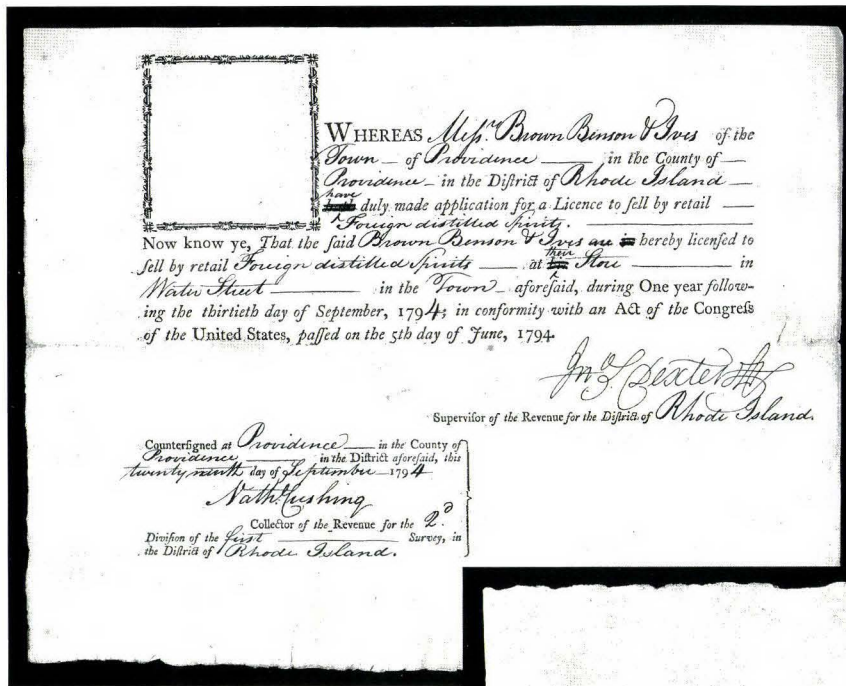 WHEREAS Meſsrs Brown Benson & Ives of the
Town of Providence in the County of
Providence in the Diſtrict of Rhode Island
have
hath duly made application for a Licence to ſell by retail
Foreign distilled Spirits.
Now know ye, That the ſaid Brown Benson & Ives are is hereby licenſed to
their
ſell by retail Foreign distilled Spirits at his Store in
Water Street in the Town aforeſaid, during One year follow-
ing the thirtieth day of September, 1794; in conformity with an Act of the Congreſs
of the United States, paſſed on the 5th day of June, 1794.
Jno S Dexter
Superviſor of the Revenue for the Diſtrict of Rhode Island.
Counterſigned at Providence in the County of
Providence in the Diſtrict aforeſaid, this
twenty ninth day of September 1794
Nathl Cushing
Collector of the Revenue for the 2d
Diviſion of the first Survey, in
the Diſtrict of Rhode Island.